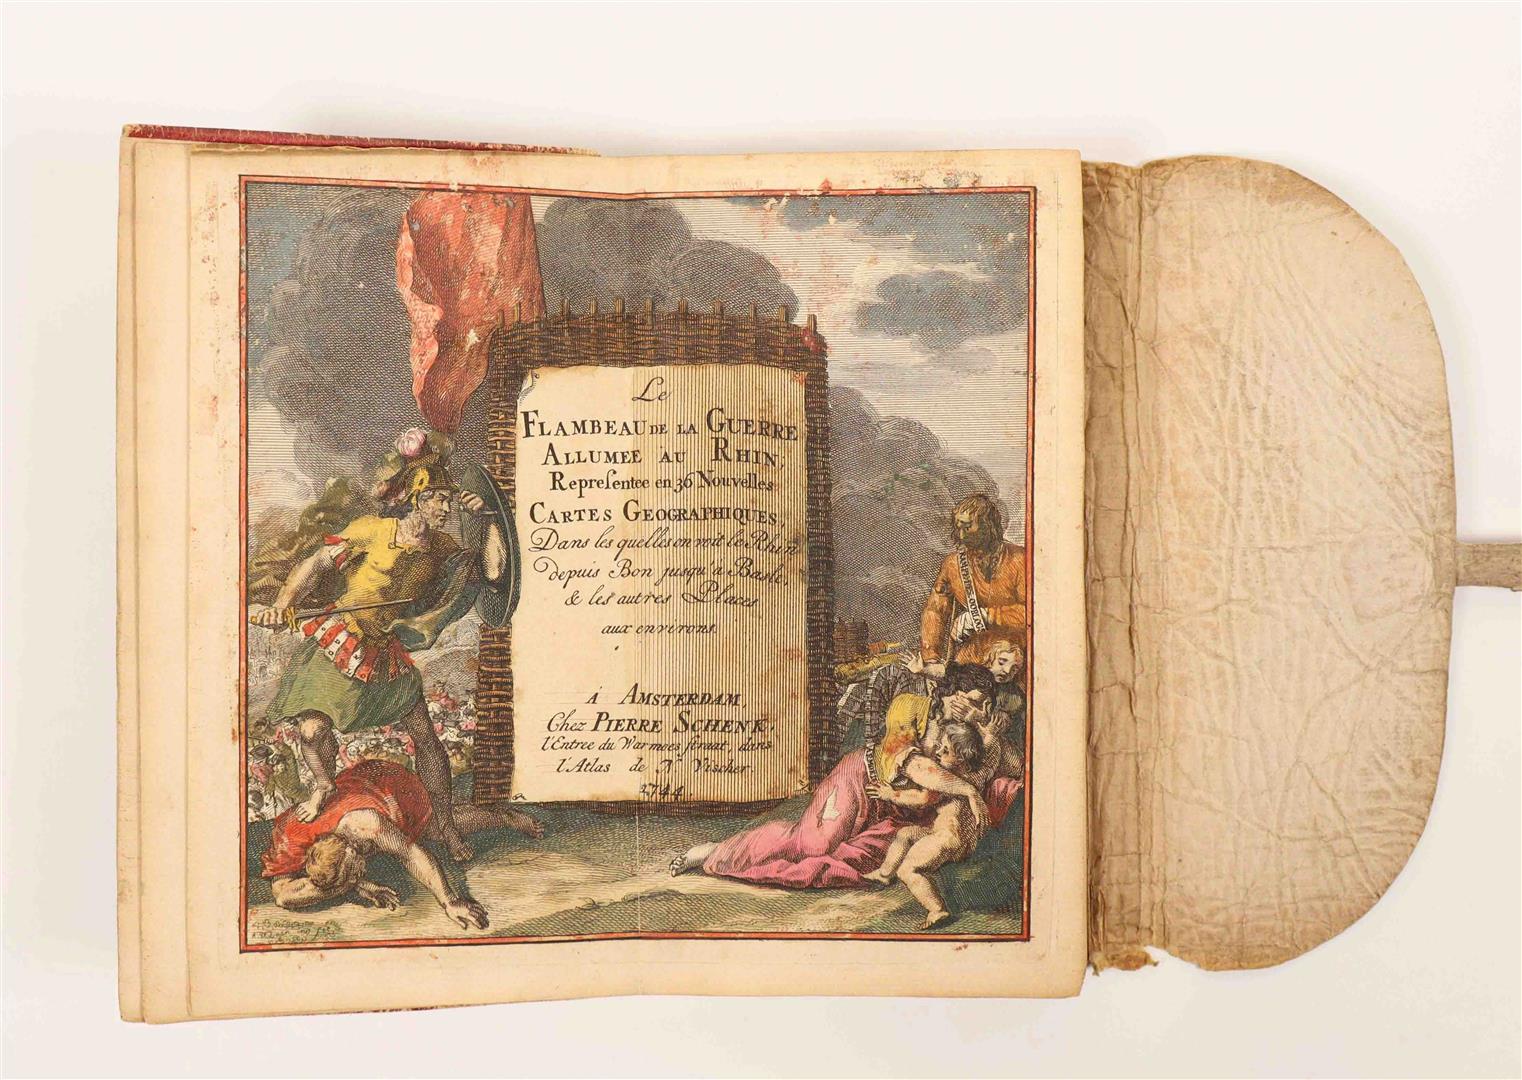 Le
FLAMBEAU DE LA GUERRE
ALLUMEE AU RHIN,
Repreſentee en 36 Nouvelles
CARTES GEOGRAPHIQUES,
Dans les quelles on voit le Rhin
depuis Bon jusqu'a Basle,
& les autres Places
aux environs.
á AMSTERDAM,
Chez PIERRE SCHENK,
l'Entree du Warmoes ſtraat, dans
l'Atlas de N. Visscher.
1744.